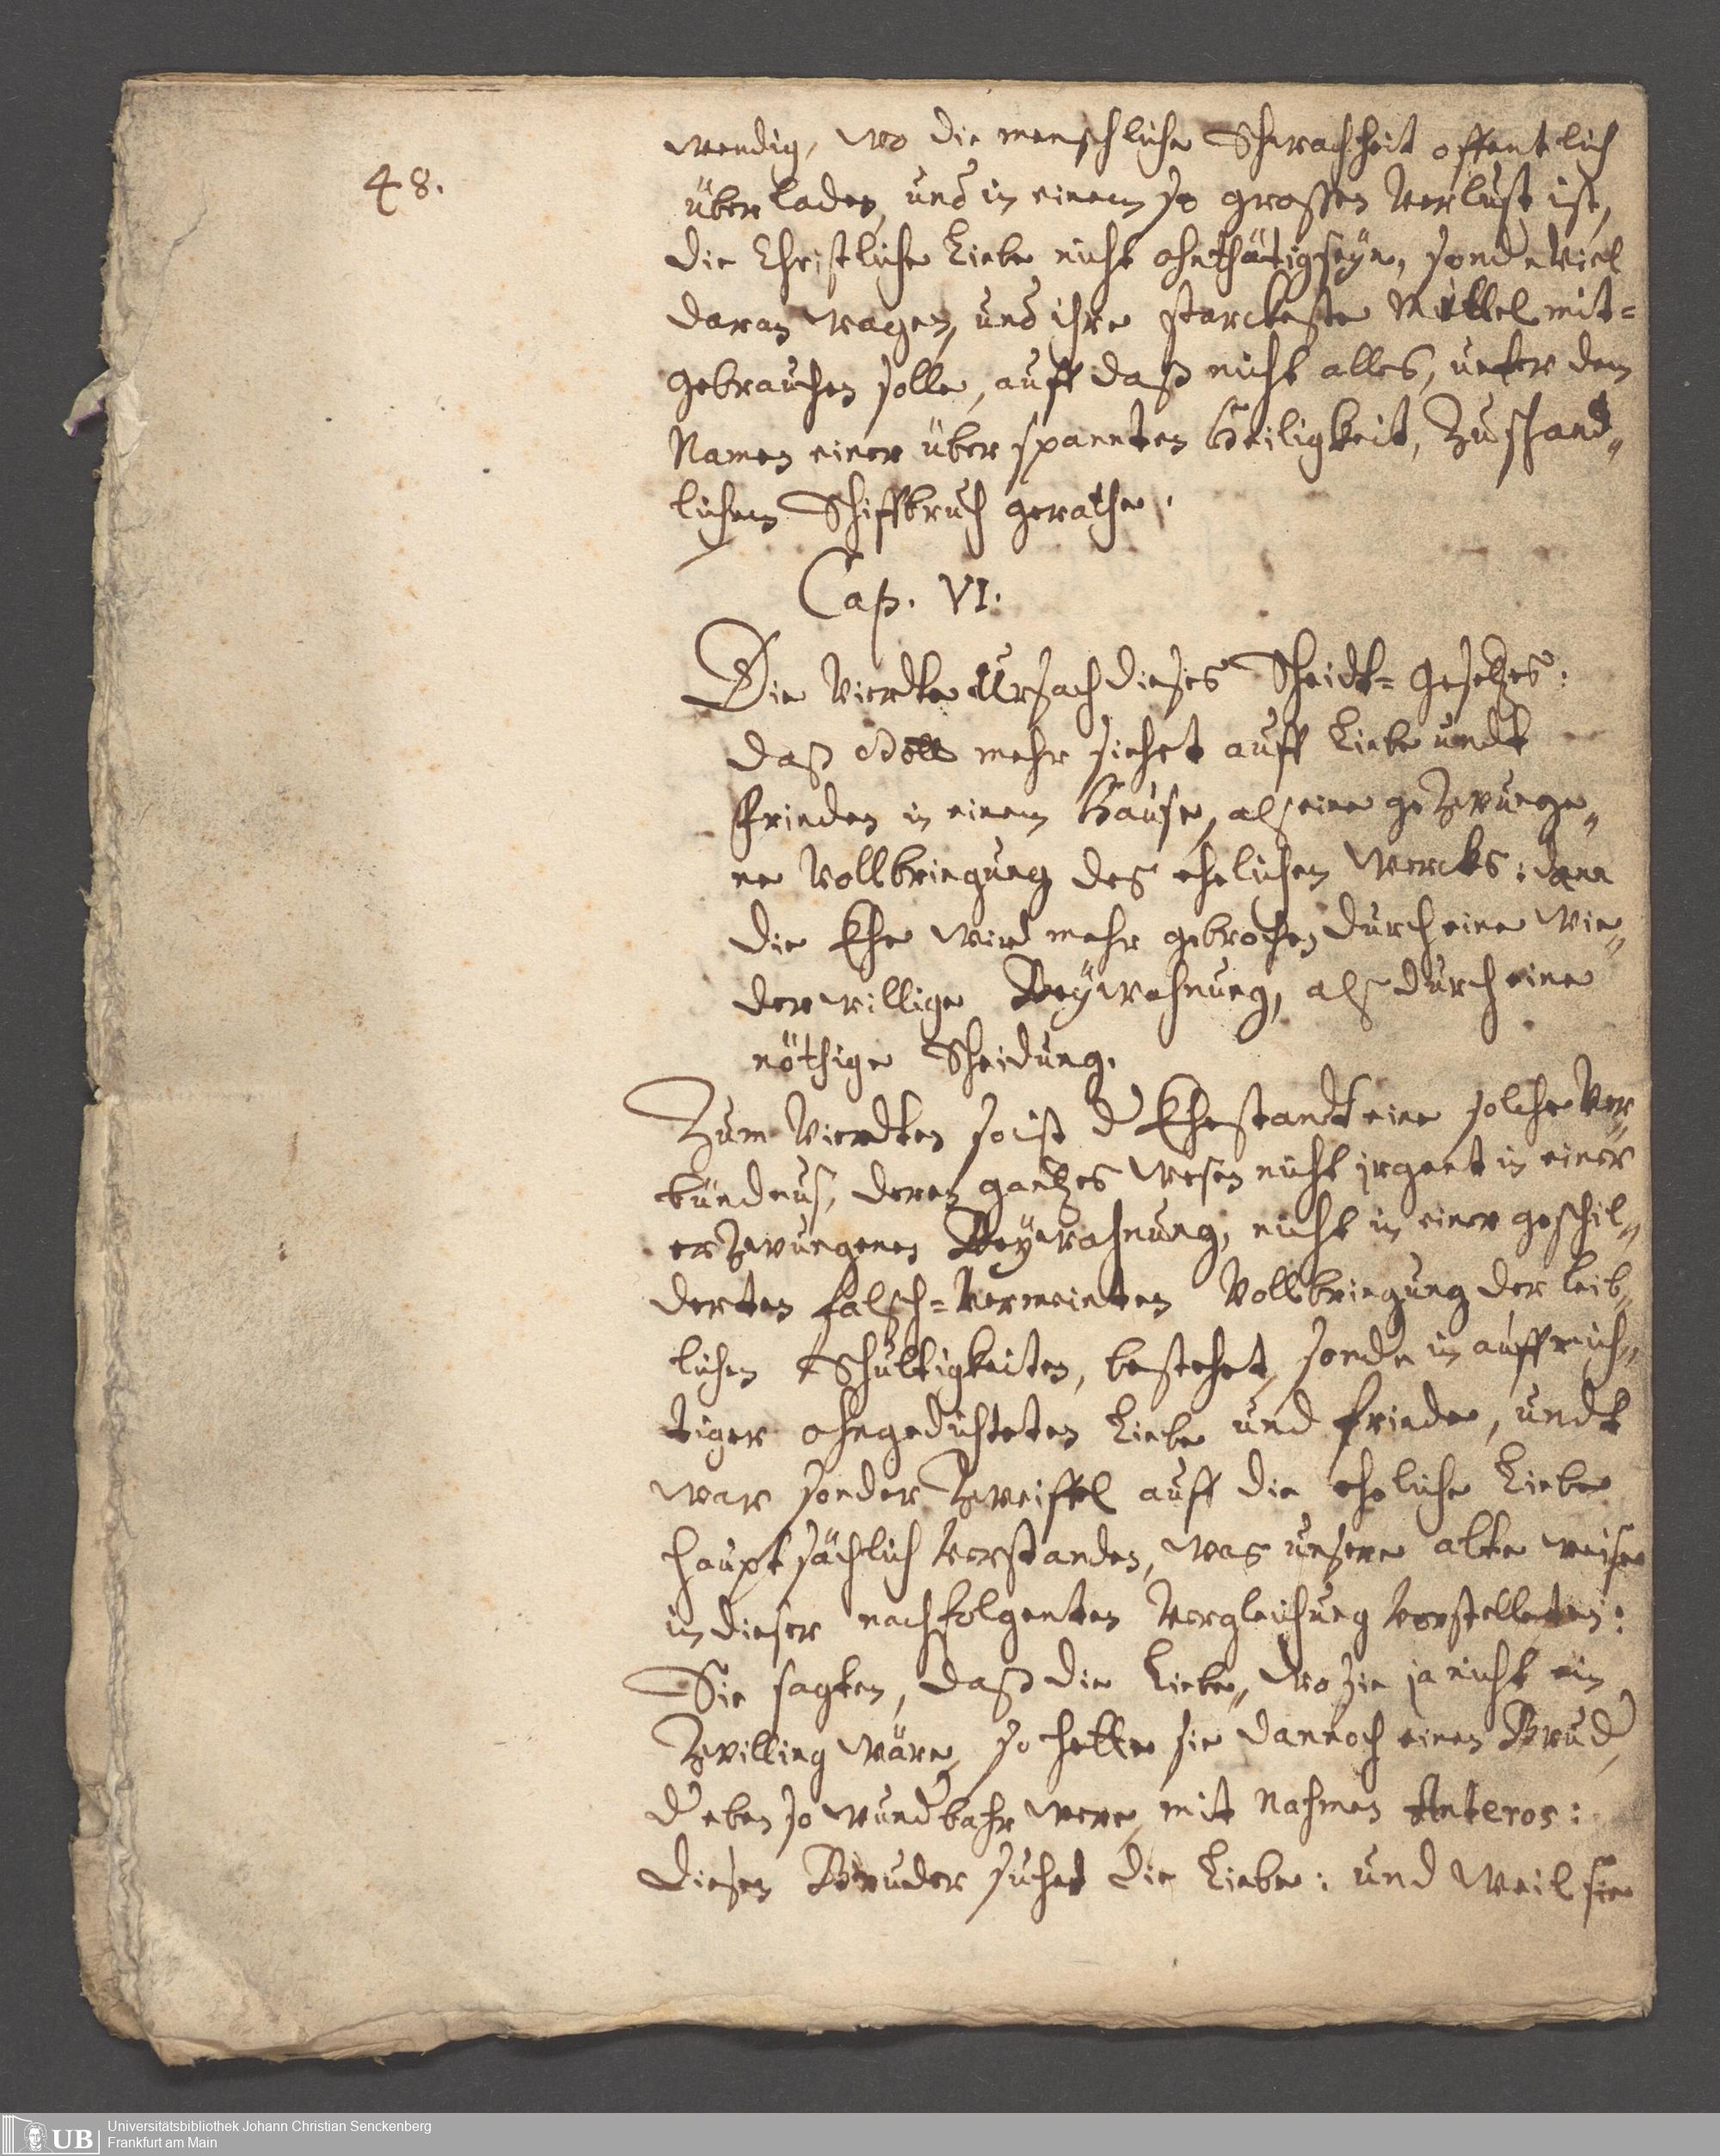 48.
wendig, wo die menschliche Schwachheit offentlich
überladen, und in einem so grossen Verlust ist,
die Christliche Liebe nicht ohnthätig seyn, sonde viel
daran wagen, und ihre starckeste Mittel mit=
gebrauchen solle, auff daß nicht alles, unter dem
Namen einer überspannten Heiligkeit, zu schand„
lichem Schiffbruch gerathe.
Cap. VI.
Die Vierdte Ursach dieses Scheidt=Gesetzes:
daß Gott mehr siehet auff Liebe undt
Frieden in einem Hause, als eine gezwunge„
ne Vollbringung des ehelichen Wercks: dann
die Ehe wird mehr gebrochen durch eine Wie„
derwillige Beywohnung, als durch eine
nöthige Scheidung.
Zum Vierdten so ist d Ehestandt eine solche Ver„
bündnus, deren gantzes wesen nicht irgent in einer
erzwungenen Beywohnung, nicht in einer geschil„
derten falsch=Vermeinten Vollbringung der leib„
lichen Schultigkeiten, bestehet, sonde in auffrich„
tiger ohngedichteten Liebe und friede, undt
war sonder Zweiffel auff die eheliche Liebe
hauptsächlich Verstanden, was unsere alte weise
in dieser nachfolgenten Vergleichung Vorstelleten:
Sie sagten, daß die Liebe, wo sie ja nicht ein
Zwilling wäre, so hette sie dannoch einen Brud,
d eben so wundbahr were, mit Nahmen Anteros:
diesen Bruder suchet die Liebe: und weil sie
Universitätsbibliothek Johann Christian Senckenberg
UB Frankfurt am Main